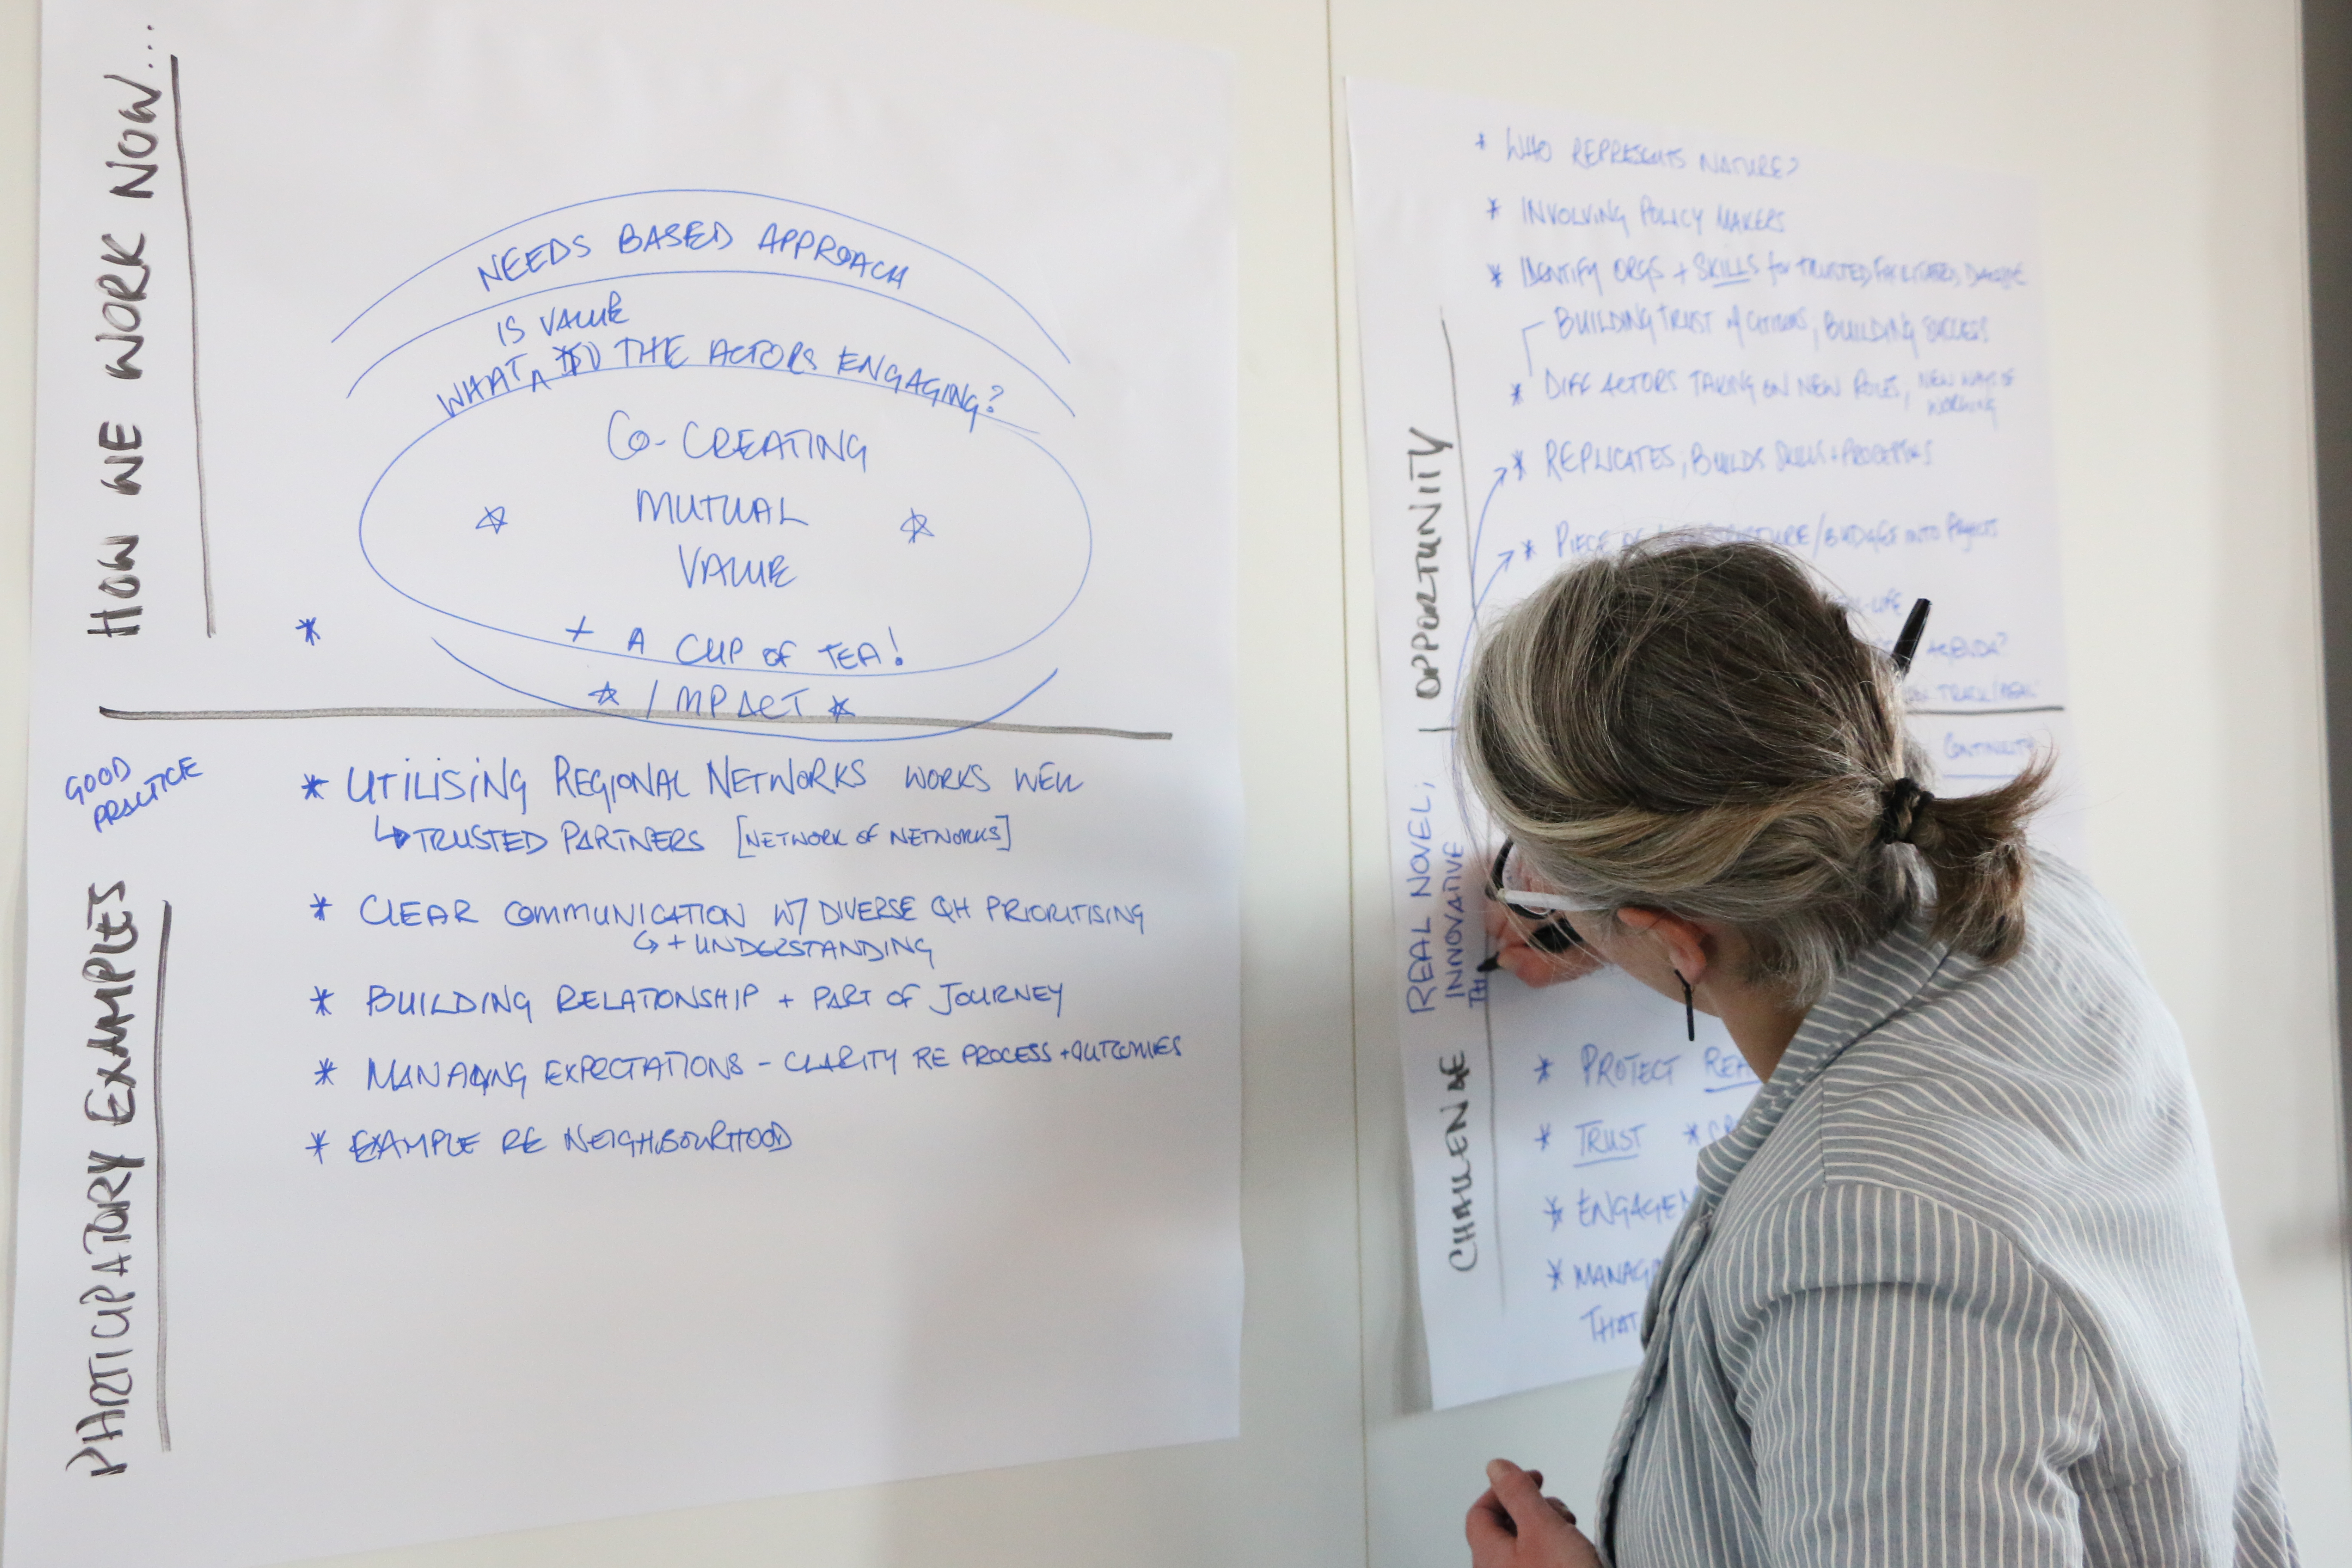 HOW WE WORK NOW...
NEEDS BASED APPROACH
IS VALUE
WHAT TO THE ACTORS ENGAGING?
CO-CREATING
MUTUAL
VALUE
+ A CUP OF TEA!
IMPACT
GOOD
PRACTICE
PARTICIPATORY EXAMPLES
* UTILISING REGIONAL NETWORKS WORKS WELL
↳ TRUSTED PARTNERS [NETWORK OF NETWORKS]
* CLEAR COMMUNICATION W/ DIVERSE QH PRIORITISING
↳ + UNDERSTANDING
* BUILDING RELATIONSHIP + PART OF JOURNEY
* MANAGING EXPECTATIONS - CLARITY RE PROCESS + OUTCOMES
* EXAMPLE RE NEIGHBOURHOOD
OPPORTUNITY
* WHO REPRESENTS NATURE?
* INVOLVING POLICY MAKERS
* IDENTIFY ORGS + SKILLS for TRUSTED
BUILDING TRUST W/ CITIZENS, BUILDING SUCCESS
* DIFF ACTORS TAKING ON NEW ROLES, NEW WAYS OF
WORKING
* REPLICATES, BUILDS SKILLS +
* PIECE OF INTO PROJECTS
-LIFE
AGENDA?
TRACK/
CONTINUITY
REAL NOVEL,
INNOVATIVE
TH
CHALLENGE
* PROTECT REA
* TRUST *
* ENGAGEM
* MANAG
THAT